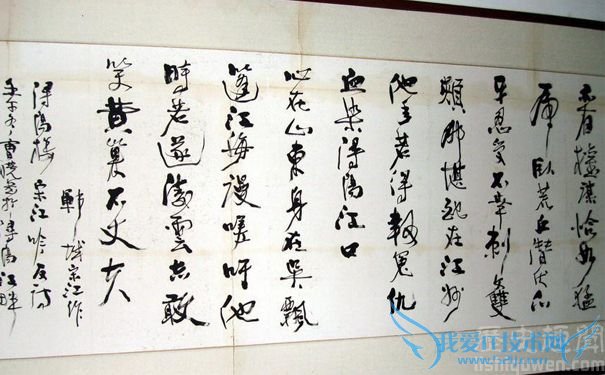 亦有權謀恰如猛
虎臥荒丘潛伏爪
牙忍受不幸刺雙
頰那堪配在江州
他年若得報冤仇
血染潯陽江口
心在山東身在吳飄
蓬江海謾嗟吁他
時若遂凌雲志敢
笑黃巢不丈夫
鄆城宋江作
潯陽樓宋江吟反詩
壬午冬曹於潯陽江畔
我爱IT技术网
lishiquwen.com